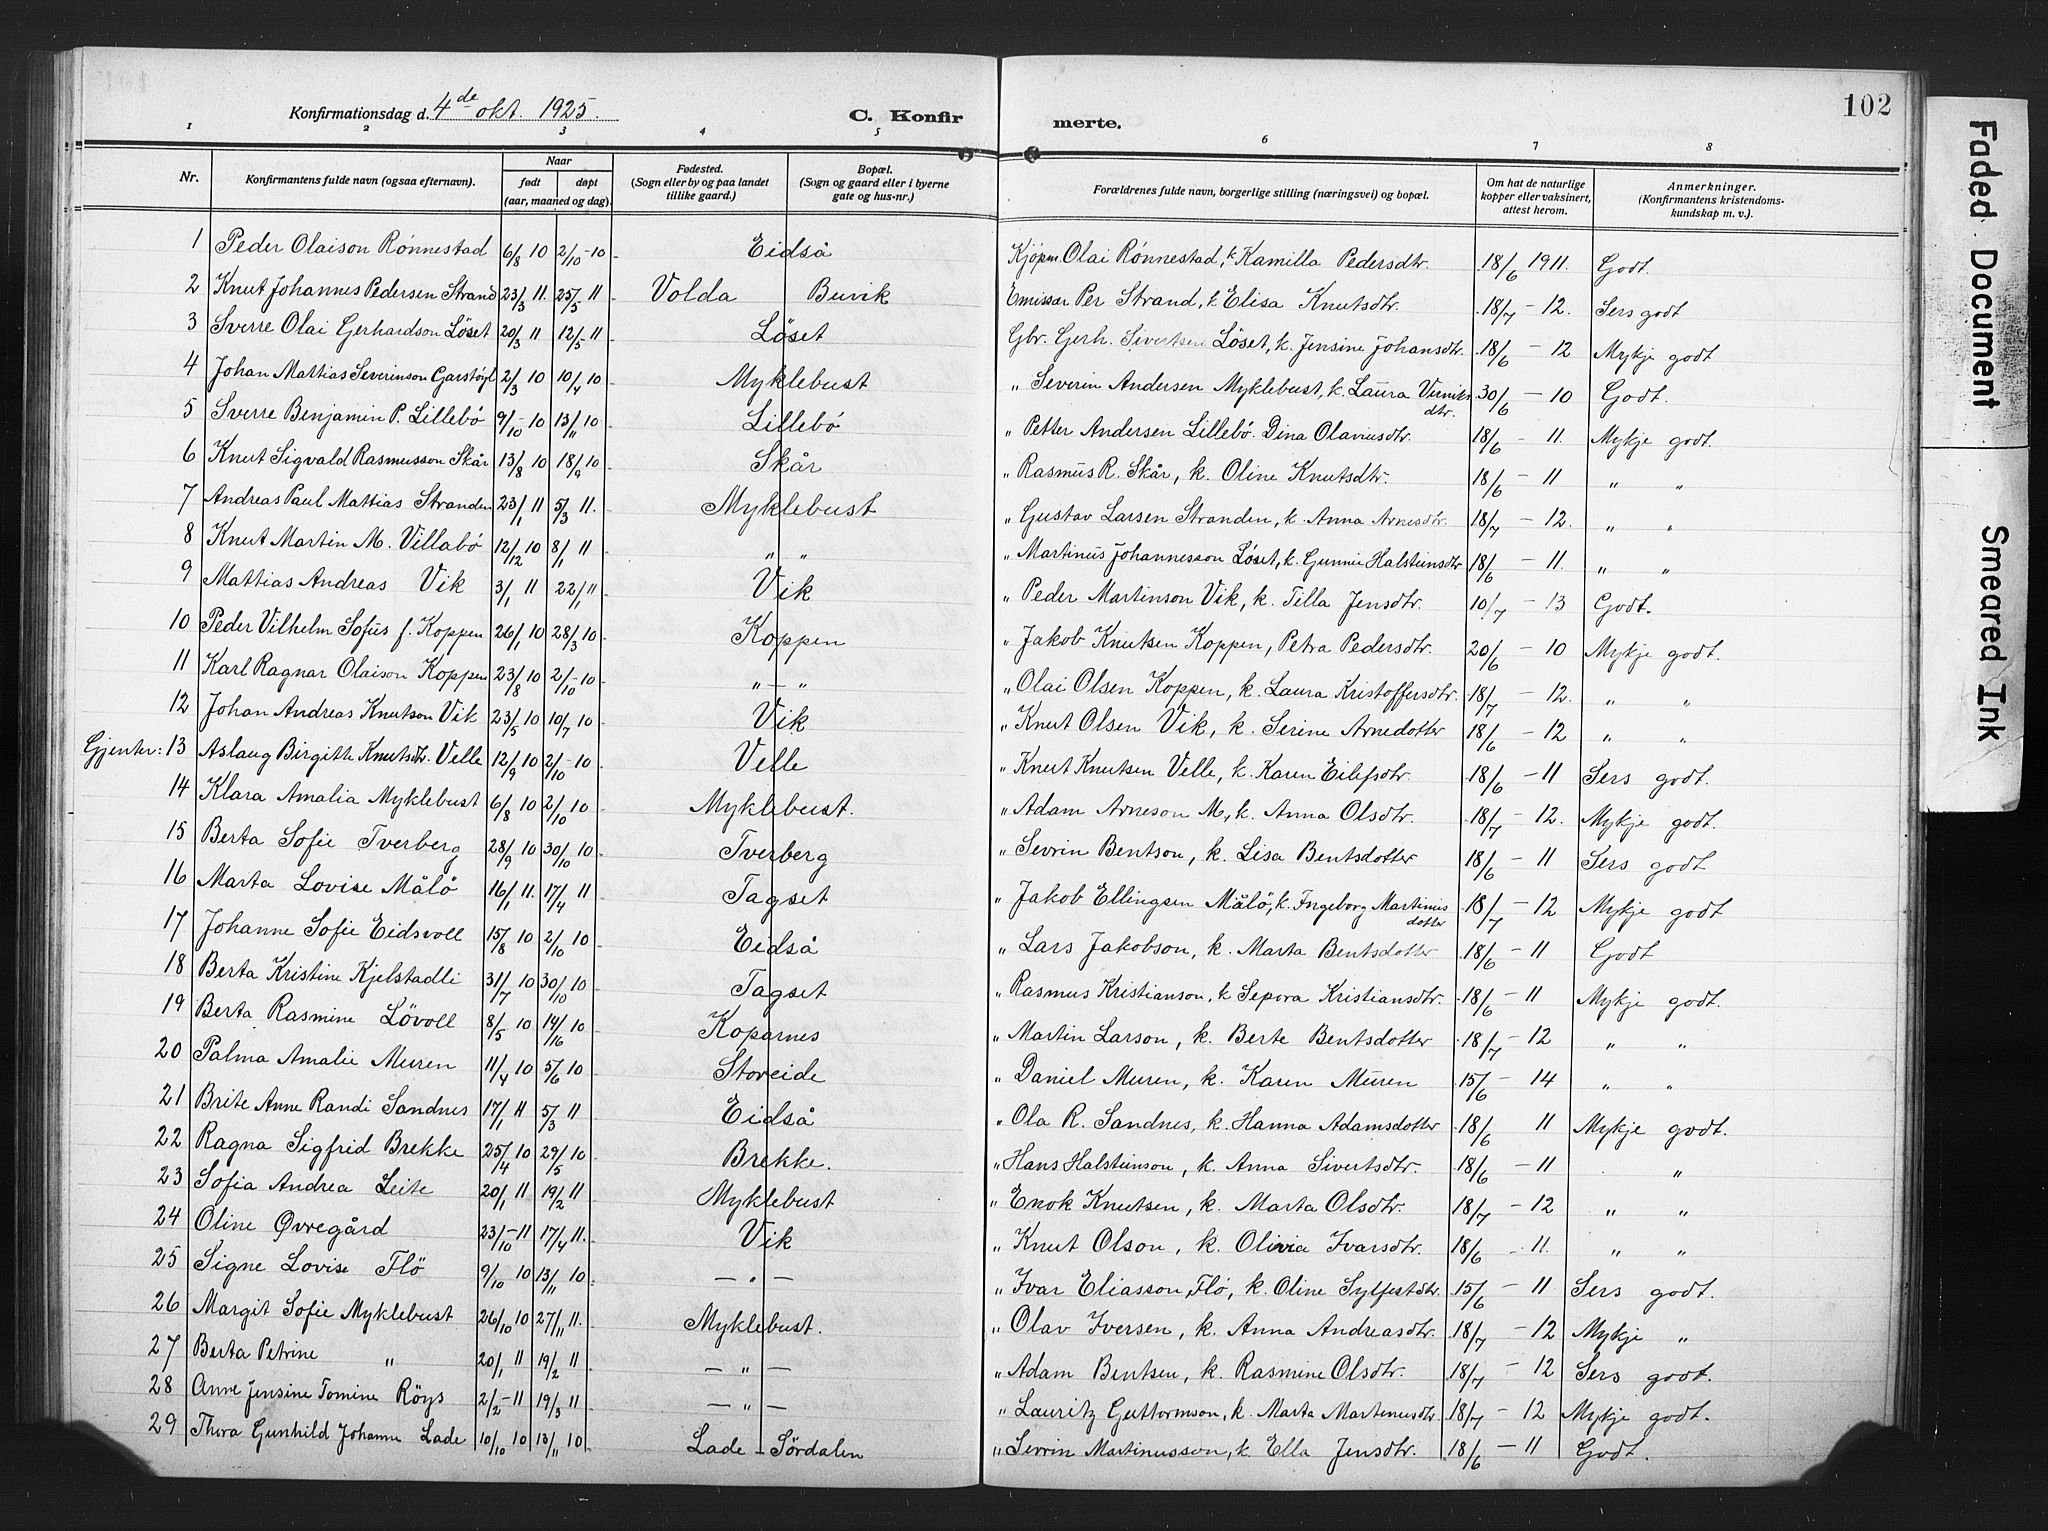 Konfirmationsdag d. 4de okt. 1925. C. Konfir merte. 102
1 2 3 4 5 6 7 8
Nr. Konfirmantens fulde navn (ogsaa efternavn). Naar født døpt (aar, maaned og dag). Fødested. (Sogn eller by og paa landet tillike gaard.) Bopæl. (Sogn og gaard eller i byerne gate og hus-nr.) Forældrenes fulde navn, borgerlige stilling (næringsvei) og bopæl. Om hat de naturlige kopper eller vaksinert, attest herom. Anmerkninger. (Konfirmantens kristendomskundskap m. v.).
1 Peder Olaison Rönnestad 6/8 10 2/10-10 Eidså Kjöpm. Olai Rönnestad, k Kamilla Pedersdtr. 18/6 1911. Godt.
2 Knut Johannes Pedersen Strand 23/3 11. 25/5 11 Volda Buvik Emissær Per Strand, k Elisa Knutsdtr. 18/7 - 12. Sers godt
3 Sverre Olai Gerhardson Löset 20/3 11 12/5 11 Löset Gbr. Gerh. Sivertsen Löset, k. Jensine Johansdtr. 18/6 - 12 Mykje godt
4 Johan Mattias Severinson Garstöyl 2/3 10 10/4 10 Myklebust " Severin Andersen Myklebust, k. Laura dtr. 30/6 - 10 Godt.
5 Sverre Benjamin P. Lillebö 9/10 - 10 13/11 10 Lillebö " Petter Andersen Lillebö. Dina Olaviusdtr. 18/6 - 11. Mykje godt.
6 Knut Sigvald Rasmusson Skår 13/8 10 18/9 10 Skår " Rasmus R. Skår, k. Oline Knutsdtr. 18/6 - 11 " "
7 Andreas Paul Mattias Stranden 23/1 11 5/3 11. Myklebust " Gustav Larsen Stranden, k. Anna Arnesdtr. 18/7 - 12. " "
8 Knut Martin M. Villabö 12/12 10 8/1 11 " " " Martinus Johannesson Löset, k. Gunnie Halsteinsdtr 18/6 - 11. " "
9 Mattias Andreas Vik 3/1 11 22/1 11 Vik " Peder Martenson Vik, k. Tilla Jensdtr. 10/7 - 13 Godt.
10 Peder Vilhelm Sofus J. Koppen 26/1 10 28/3 10 Koppen " Jakob Knutsen Koppen, Petra Pedersdtr. 20/6 - 10 Mykje godt.
11 Karl Ragnar Olaison Koppen 23/8 10 2/10-10 " - " " Olai Olsen Koppen, k. Laura Kristoffersdtr. 18/7 - 12. " "
12 Johan Andreas Knutson Vik 23/5 10 10/7 10 Vik " Knut Olsen Vik, k. Serine Arnedotter 18/6 - 12 " "
Gjenter: 13 Aslaug Birgitte Knutsdtr. Velle 12/9 10 2/10-10 Velle " Knut Knutsen Velle, k. Karen Eilefsdtr. 18/6 - 11 Sers godt.
14 Klara Amalia Myklebust 6/8 10 2/10 10 Myklebust. " Adam Arneson M, k. Anna Olsdtr. 18/7 - 12. Mykje godt.
15 Berta Sofie Tverberg 28/9 10 30/10 10 Tverberg " Sevrin Bentson, k. Lisa Bentsdotter 18/6 - 11 Sers godt
16 Marta Lovise Målö 16/1 11. 17/4 11 Tagset " Jakob Ellingsen Målö, k. Ingeborg Martinus dotter 18/7 - 12 Mykje godt
17 Johanne Sofie Eidsvoll 15/8 10 2/10 10 Eidså " Lars Jakobson, k. Marta Bentsdotter 18/6 - 11 Godt
18 Berta Kristine Kjelstadli 31/7 10 30/10 10 Tagset " Rasmus Kristianson, k Sepora Kristiansdtr. 18/6 - 11 Mykje godt.
19 Berta Rasmine Lövoll 8/5 10 14/16 10 Koparnes " Martin Larson, k. Berte Bentsdotter 18/7 - 12 " "
20 Palma Amalie Muren 11/4 10 5/6 10 Storeide " Daniel Muren, k. Karen Muren 15/6 - 14 " "
21 Brite Anne Randi Sandnes 17/1 11 5/3 11 Eidså " Ola R. Sandnes, k. Hanna Adamsdotter 18/6 11 Mykje godt.
22 Ragna Sigfrid Brekke 25/4 10 29/5 10 Brekke. " Hans Halsteinson, k. Anna Sivertsdtr. 18/6 - 11 "
23 Sofia Andrea Leite 20/1 11 19/2 11 Myklebust " Enok Knutsen, k. Marta Olsdtr. 18/7 - 12 " "
24 Oline Øvregård 23/10-11 17/4 11. Vik " Knut Olson, k. Olivia Ivarsdtr. 18/6 - 11. " "
25 Signe Lovise Flö 9/10 10 13/11 10 - " - " Ivar Eliasson Flö, k. Oline Sylfestdtr. 15/6 - 11 Sers godt.
26 Margit Sofie Myklebust 26/10 10 27/11 11. Myklebust. " Olav Iversen, k. Anna Andreasdtr. 18/7 - 12 Mykje "
27 Berta Petrine " 20/1 11 19/2 11 - " - " Adam Bentsen, k. Rasmine Olsdtr. 18/7 - 12 Sers godt.
28 Anne Jensine Tomine Röys 2/2-11 19/3 11 - " - " Lauritz Guttormson, k. Marta Martenusdtr 18/7 - 12 Mykje godt.
29 Thora Gunhild Johanne Lade 10/10 10 13/11 10 Lade - Sördalen " Sevrin Martinusson, k. Ella Jensdtr. 18/6 - 11 Godt.
Faded Document Smeared Ink